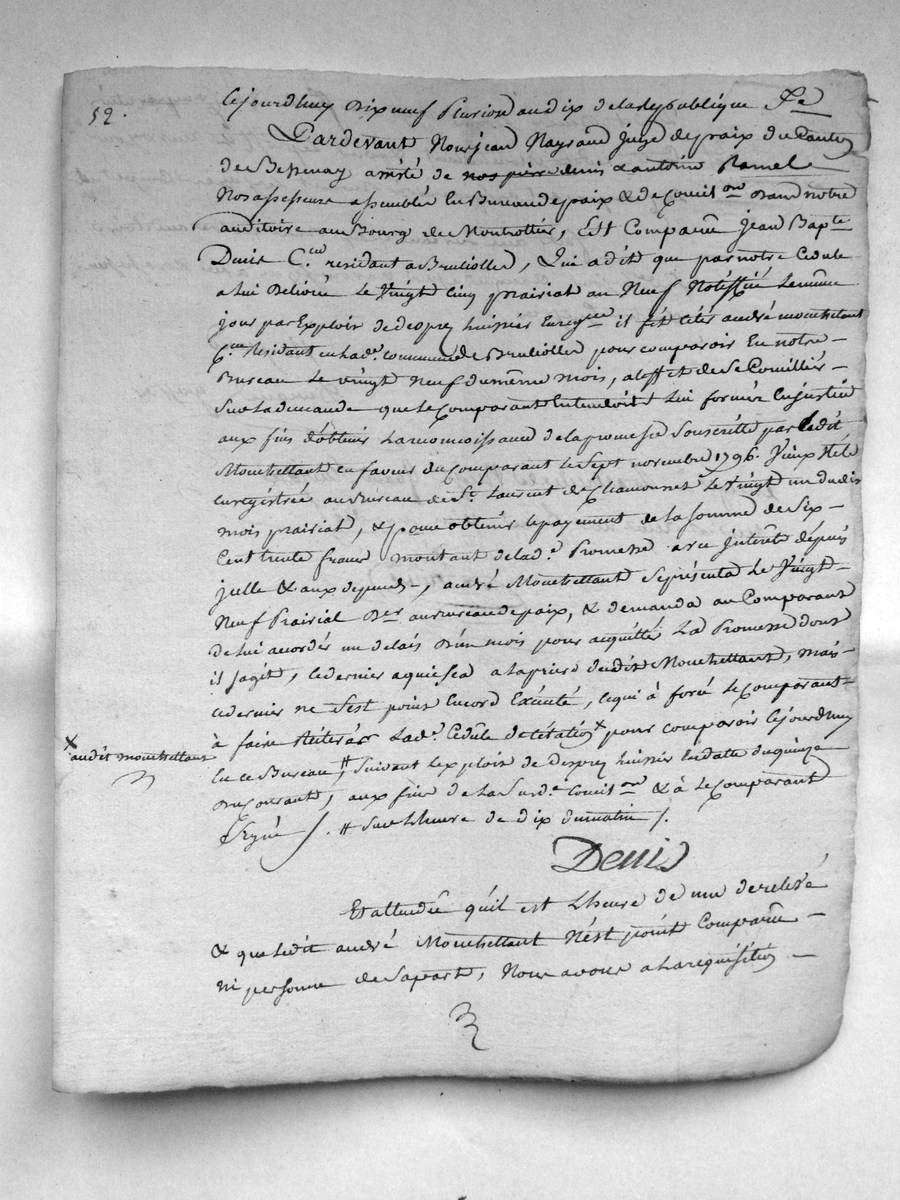 52.
Cejourdhuy dixneuf Pluviose an dix de la Republique fse
Pardevant Nous jean Nayrand juge de paix du Canton
de Bessenay assisté de nos pierre denis & antoine Ramel
Nos assesseurs assemblés En Bureau de paix & de Concil.on dans notre
auditoire au Bourg de Montrottier, Est Comparu Jean Bap.te
Denis C.eur residant a Brulliolles, Qui a dit que par notre Cedule
a Lui Delivrée Le Vingt Cinq prairial an Neuf Notiffiée Le même
jour par Exploit de desprez huissier Enreg.ré il fit citer andré mouchettant
C.eur residant en lad.e commune de Brulliolles pour comparoir En notre
Bureau Le vingt Neuf du même mois, a l'effet de se Concillier
Sur La demande que le Comparant Entendoit Lui former En justice
aux fins d'obtenir La reconnoissance de la promesse Souscritte par le dit
Mouchettant en faveur du comparant le Sept novembre 1796. Vieux Stile
enregistrée au Bureau de S.t Laurent de Chamousset le vingt un dudit
mois prairial, & pour obtenir le payement de la somme de Six
Cent trente francs montant de lad.e Promesse avec jnterêts depuis
jcelle & aux depends, andré Mouchettant Se présenta Le Vingt
Neuf Prairial D.er au Bureau de paix, & demanda au Comparant
de lui accorder un delais D'un mois pour acquitter La Promesse dont
il s'agit, ce dernier aquiesca a la priere dudit Mouchettant, mais
ce dernier ne s'est point Encore Exécuté, ce qui a forcé le comparant
à faire Réiterér Lad.e Cedule de citation x pour comparoir Cejourdhuy
x audit mouchettant
En ce Bureau, # Suivant L'exploit de Desprez huissier En datte du quinze
Du Courant, aux fins de La Susd.e Concil.on & à Le Comparant
Signé /. # Sur L'heure de dix du matin /.
Denis
Et attendû qu'il est L'heure de une de relevée
& que ledit andré Mouchettant N'est point Comparu
ni personne de Sa part, Nous avons a La requisition